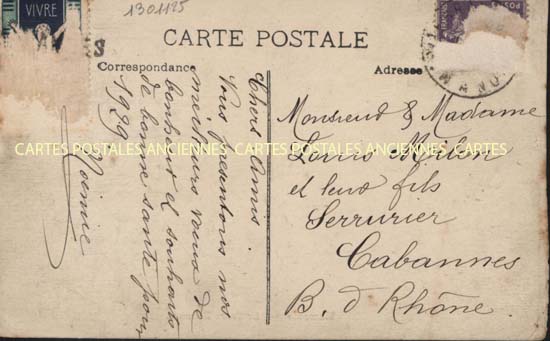 VIVRE
1301125
S
CARTE POSTALE
Correspondance
Adresse
Chers Amis
Vous présentons nos
meilleurs vœux de
bonheur et souhaits
de bonne santé pour
1929
Monsieur & Madame
Louis
et leur fils
Serrurier
Cabannes
B. d Rhône.
CARTES POSTALES ANCIENNES CARTES POSTALES ANCIENNES CARTES